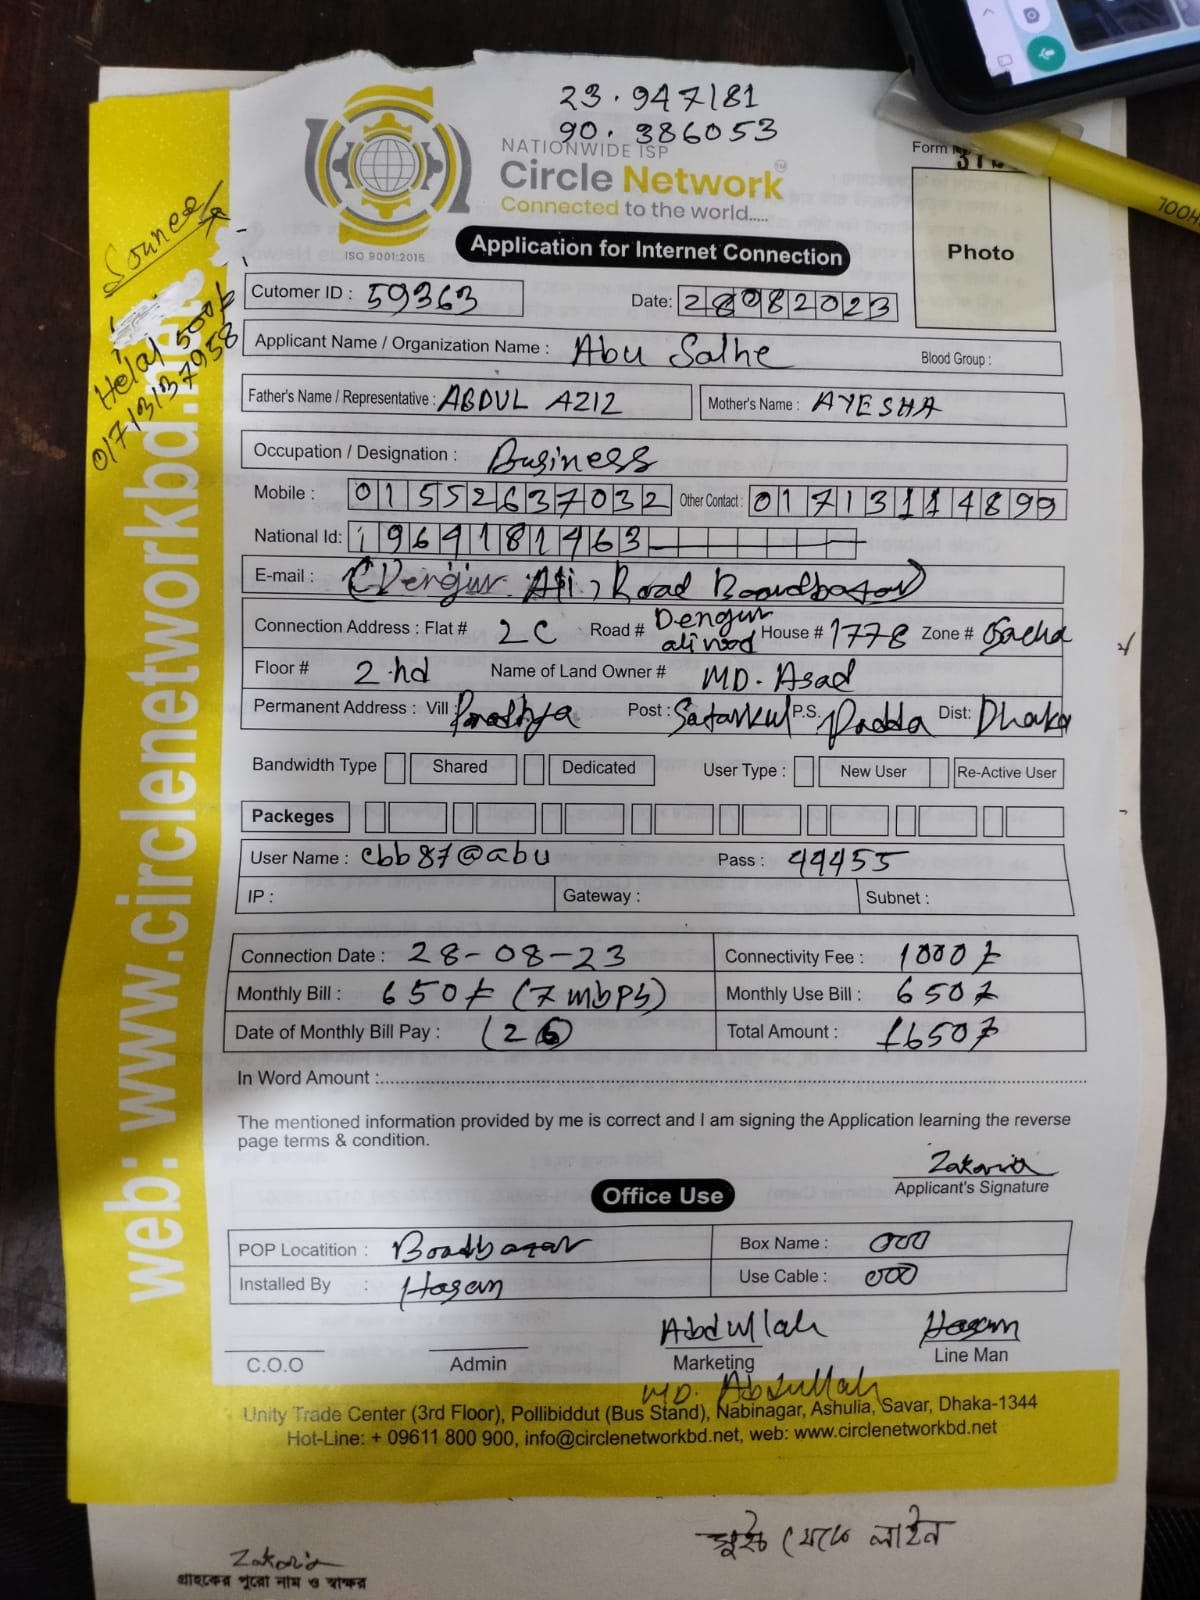 23.947181
90.386053
NATIONWIDE ISP
Circle Network TM
Connected to the world.....
ISO 9001:2015
Form
Photo
Application for Internet Connection
Helal 500/-
01713137958
Cutomer ID : 59363
Date: 28082023
Applicant Name / Organization Name : Abu Salhe Blood Group :
Father's Name / Representative : ABDUL AZIZ Mother's Name : AYESHA
Occupation / Designation : Business
Mobile : 01552637032 Other Contact : 01713114899
National Id: 1964181463
E-mail : Dengur Ali, Road Boardbazar
Connection Address : Flat # 2C Road # Dengur ali road House # 1778 Zone #
Floor # 2nd Name of Land Owner # MD. Asad
Permanent Address : Vill : Post : Satarkul P.S. Badda Dist: Dhaka
Bandwidth Type Shared Dedicated User Type : New User Re-Active User
Packeges
User Name : cbb87@abu Pass : 44455
IP : Gateway : Subnet :
Connection Date : 28-08-23 Connectivity Fee : 1000/-
Monthly Bill : 650/- (7 mbps) Monthly Use Bill : 650/-
Date of Monthly Bill Pay : Total Amount : 1650/-
In Word Amount :
The mentioned information provided by me is correct and I am signing the Application learning the reverse
page terms & condition.
Zakaria
Applicant's Signature
Office Use
POP Locatition : Boadbazar Box Name : 000
Installed By : Hasan Use Cable : 000
Abdullah Hasan
C.O.O Admin Marketing Line Man
MD. Abdullah
Unity Trade Center (3rd Floor), Pollibiddut (Bus Stand), Nabinagar, Ashulia, Savar, Dhaka-1344
Hot-Line: + 09611 800 900, info@circlenetworkbd.net, web: www.circlenetworkbd.net
web: www.circlenetworkbd.net
লাইন
Zakaria
গ্রাহকের পুরো নাম ও স্বাক্ষর